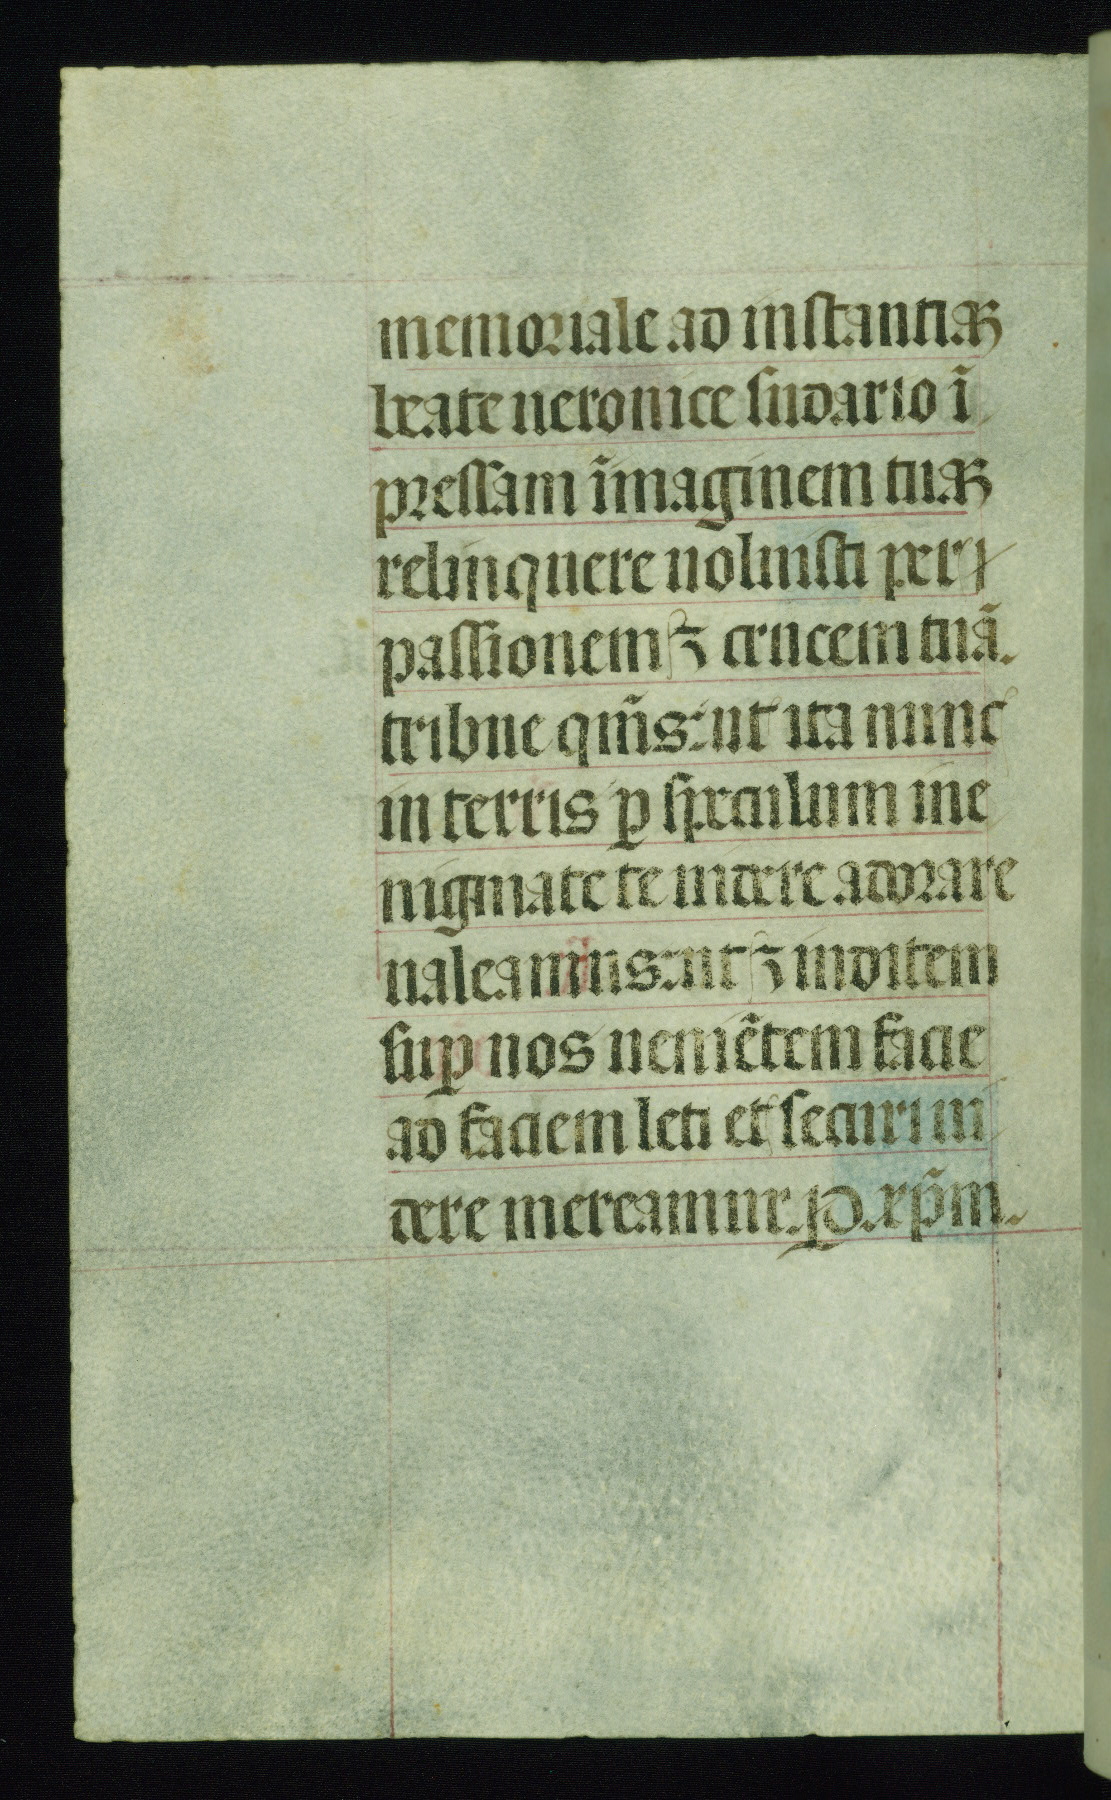 memoriale ad instantiaꝝ
beate veronice sudario ī
pressam īmaginem tuaꝝ
relinquere voluisti per
passionem ⁊ crucem tuā.
tribue qm̄s: ut ita nunc
in terris ꝑ speculum in e
nigmate te videre adorare
valeamus: ut ⁊ iuditem
suꝑ nos veniētem facie
ad faciem leti et securi vi
dere mereamur. P. xp̄m.